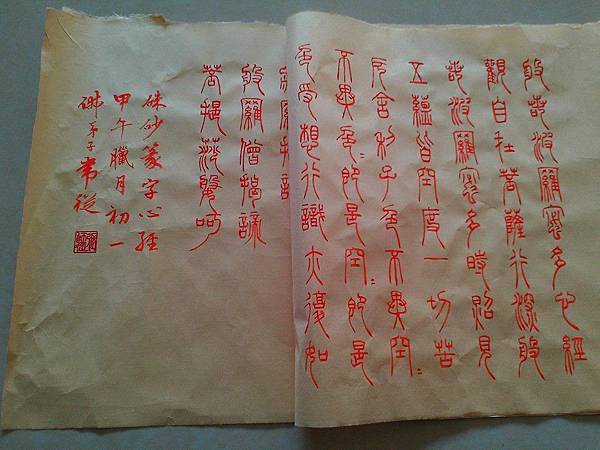 般若波羅蜜多心經
觀自在菩薩行深般
若波羅蜜多時照見
五蘊皆空度一切苦
厄舍利子色不異空=
不異色=即是空=即是
色受想行識亦復如
般羅僧揭諦
菩提莎婆呵
硃砂篆字心經
甲午臘月初一
佛弟子常從